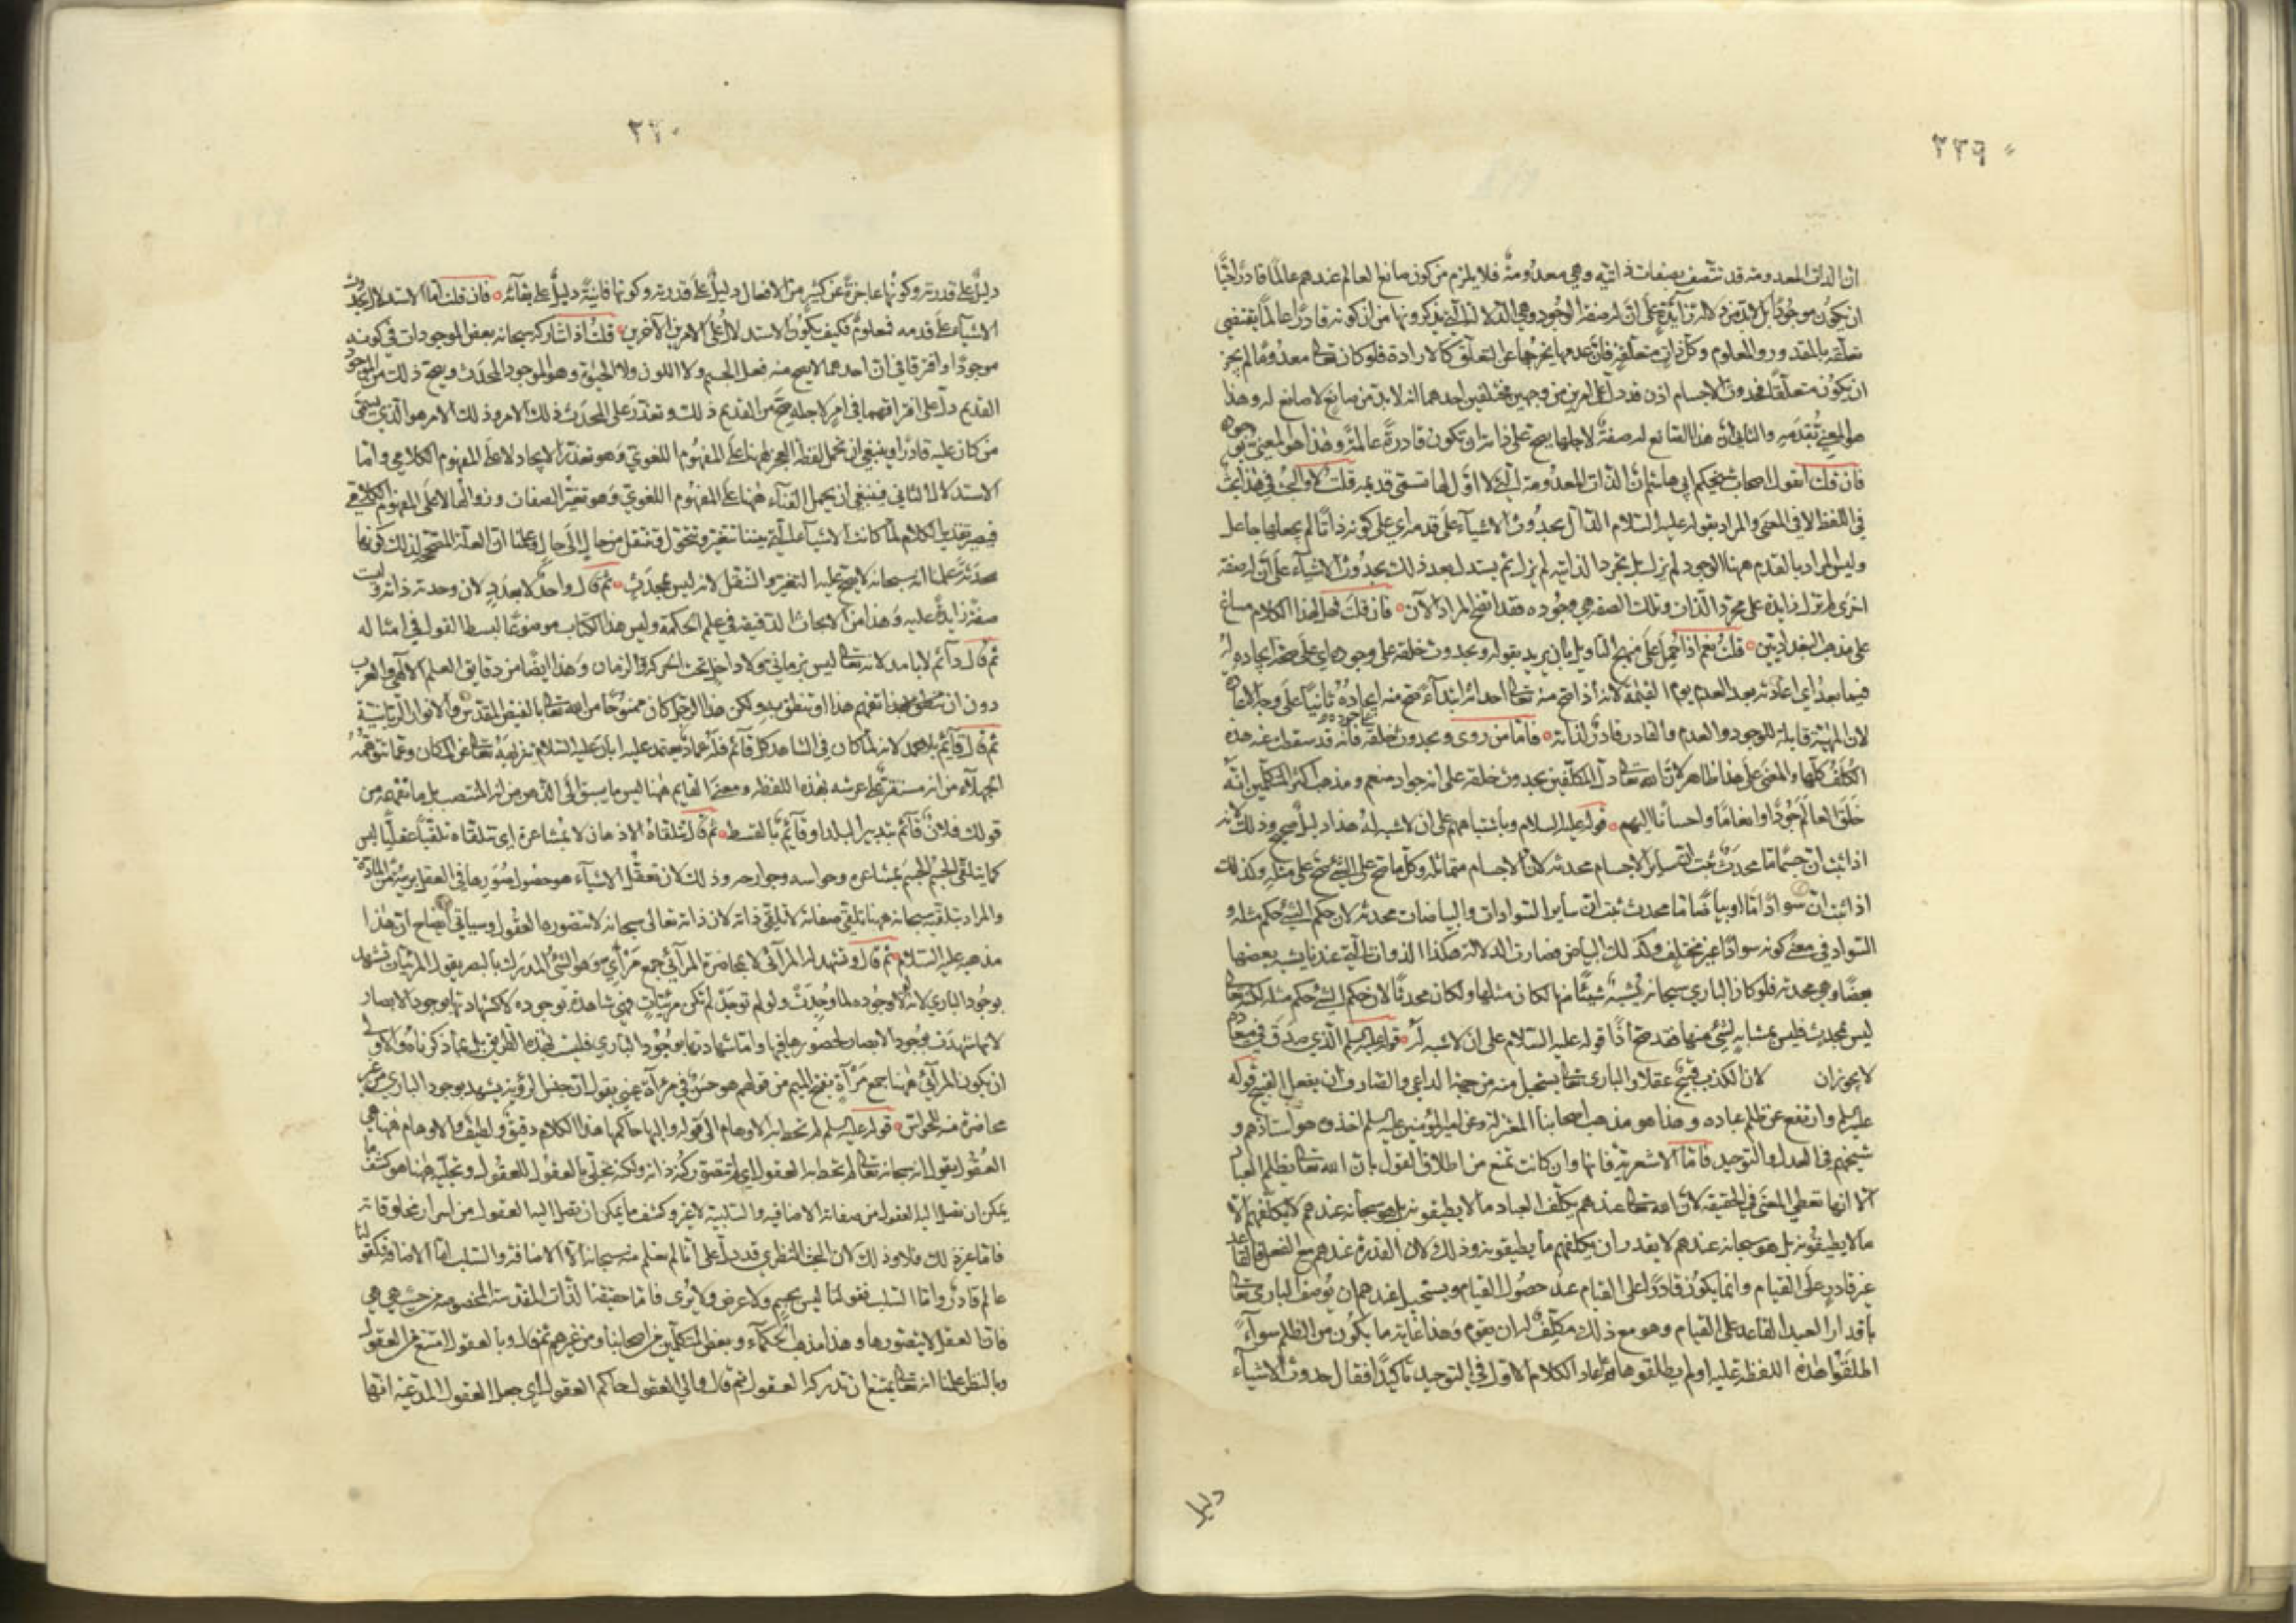 ٣٣٩
ان الذات المعدومة قد تتصف بصفات ذاتيه وهي معدومة فلا يلزم من كون صانع العالم عندهم عالما قادرا حيا
ان يكون موجودا بل لابد من دلالة زائدة على ان له صفة الوجود وهي الدلالة التي يذكرونها من ان كونه قادرا عالما يقتضي
تعلقه بالمقدور والمعلوم وكل ذات متعلقة فان عدمها يخرجها عن التعلق كالارادة فلو كان تعالى معدوما لم يجز
ان يكون متعلقا فحدوث الاجسام اذن قد دل على امرين من وجهين مختلفين احدهما انه لابد من صانع لا صانع له وهذا
هو المعني بقدمه والثاني ان هذا الصانع له صفة لاجلها يصح على ذاته ان تكون قادرة عالمة وهذا هو المعني بوجوده
فان قلت ايقول اصحاب شيخكم ابي هاشم ان الذات المعدومة التي لا اول لها تسمى قديمه قلت لا والبحث في هذا بحث
في اللفظ لا في المعنى والمراد بقوله عليه السلام الدال بحدوث الاشياء على قدمه اي على كونه ذاتا لم يجعلها جاعل
وليس المراد بالقدم ههنا الوجود لم يزل بل مجرد الذاتيه لم يزل ثم يستدل بعد ذلك بحدوث الاشياء على ان له صفة
اخرى لم تزل زايدة على مجرد الذات وتلك الصفه هي وجوده فقد اتضح المراد الآن فان قلت فهل لهذا الكلام مساغ
على مذهب البغداديين قلت نعم اذا حمل على منهج التاويل بان يريد بقوله وبحدوث خلقه على وجوده اي على صحة ايجاده له
فيما بعد اي اعادته بعد العدم يوم القيمة لانه اذا صح منه تعالى احداثه ابتداء صح منه ايجاده ثانيا على وجه الاعادة
لان المهية قابلة للوجود والعدم والقادر قادر لذاته فاما من روى وبحدوث خلقه على جوده فانه قد سقطت عنه هذه
الكلف كلها والمعنى على هذا ظاهر لان الله تعالى دل المكلفين بحدوث خلقه على انه جواد منعم ومذهب اكثر المتكلمين انه
خلق العالم جودا وانعاما واحسانا اليهم قوله عليه السلام وباشتباههم على ان لا شبه له هذا دليل صحيح وذلك لانه
اذا ثبت ان جسما ما محدث ثبت ان ساير الاجسام محدثه لان الاجسام متماثله وكل ما صح على الشئ صح على مثله وكذلك
اذا ثبت ان سوادا ما او بياضا ما محدث ثبت ان ساير السوادات والبياضات محدثه لان حكم الشئ حكم مثله و
السواد في معنى كونه سوادا غير مختلف وكذلك البياض فصارت الدلالة هكذا الذوات التي عندنا يشبه بعضها
بعضا وهي محدثه فلو كان الباري سبحانه يشبه شيئا منها لكان مثلها ولكان محدثا لان حكم الشئ حكم مثله لكنه تعالى
ليس بمحدث فليس بمشابه لشئ منها فقد صح اذا قوله عليه السلام على ان لا شبه له قوله عليه السلم الذي صدق في ميعاده
لا يجوز ان لان الكذب قبيح عقلا والباري تعالى يستحيل منه من جهة الداعي والصارف ان يفعل القبيح قوله
عليه السلم وارتفع عن ظلم عباده وهذا هو مذهب اصحابنا المعتزله وعن امير المؤمنين عليه السلم اخذوه وهو استاذهم و
شيخهم في العدل والتوحيد فاما الاشعرية فانها وان كانت تمنع من اطلاق القول بان الله تعالى يظلم العباد
الا انها تعطي المعنى في الحقيقه لان الله تعالى عندهم يكلف العباد ما لا يطيقونه بل هو سبحانه عندهم لا يكلفهم الا
ما لا يطيقونه بل هو سبحانه عندهم لا يقدر ان يكلفهم ما يطيقونه وذلك لان القدرة عندهم مع الفعل فالقاعد
غير قادر على القيام وانما يكون قادرا على القيام عند حصول القيام ويستحيل عندهم ان يوصف الباري تعالى
باقدار العبد القاعد على القيام وهو مع ذلك مكلف له ان يقوم وهذا غاية ما يكون من الظلم سواء
اطلقوا هذه اللفظة عليه او لم يطلقوها ثم اعاد الكلام الاول في التوحيد تاكيدا فقال حدوث الاشياء
دليل
٣٣٠
دليل على قدرته وكونها عاجزة عن كثير من الافعال دليل على قدرته وكونها فانية دليل على بقائه فان قلت اما الاستدلال بحدوث
الاشياء على قدمه فمعلوم فكيف يكون الاستدلال على الامرين الآخرين قلت اذا شاركه سبحانه بعض الموجودات في كونه
موجودا وافترقا في ان احدهما لا يصح منه فعل الجسم ولا اللون ولا الحيوة وهو الموجود المحدث ويصح ذلك من الموجود
القديم دل على افتراقهما في امر لاجله صح من القديم ذلك وتعذر على المحدث ذلك الامر وذلك الامر هو الذي يسمى
من كان عليه قادرا وينبغي ان تحمل لفظة العجز ههنا على المفهوم اللغوي وهو تعذر الايجاد لا على المفهوم الكلامي واما
الاستدلال الثاني فينبغي ان يحمل الفناء ههنا على المفهوم اللغوي وهو تغير الصفات وزوالها لا على المفهوم الكلامي
فيصير تقدير الكلام لما كانت الاشياء التي بيننا تتغير وتتحول وتنتقل من حال الى حال وعلمنا ان العلة المصححة لذلك كونها
محدثة علمنا انه سبحانه لا يصح عليه التغير والتنقل لانه ليس بمحدث ثم قال واحد لا بعدد لان وحدته ذاتية وليست
صفة زايدة عليه وهذا من الابحاث الدقيقة في علم الحكمة وليس هذا الكتاب موضوعا لبسط القول في امثاله
ثم قال دائم لا بامد لانه تعالى ليس بزماني ولا داخل تحت الحركة والزمان وهذا ايضا من دقايق العلم الالهي والعرب
دون ان تفهم هذا او تنطق به ولكن هذا الرجل كان ممنوحا من الله تعالى بالفيض المقدس والانوار الربانية
ثم قال قائم لا بعمد لانه لما كان في الشاهد كل قائم فله عماد يعتمد عليه ابان عليه السلام تنزيهه تعالى عن المكان وعما يتوهمه
الجهلاء من انه مستقر على عرشه بهذه اللفظه ومعنى القايم ههنا ليس ما يسبق الى الذهن من انه المنتصب بل ما تفهمه من
قولك فلان قائم بتدبير البلد وقائم بالقسط ثم قال تتلقاه الاذهان لا بمشاعرة اي تتلقاه تلقيا عقليا ليس
كما يتلقى الجسم الجسم بمشاعره وحواسه وجوارحه وذلك لان تعقل الاشياء هو حصول صورها في العقل بريئة من المادة
والمراد بتلقيه سبحانه ههنا تلقي صفاته لا تلقي ذاته لان ذاته تعالى سبحانه لا تتصورها العقول وسياتي ايضاح ان هذا
مذهبه عليه السلام ثم قال وتشهد له المرائي لا بمحاضرة المرائي جمع مرأي وهو الشئ المدرك بالبصر يقول المرئيات تشهد
بوجود الباري لانه لولا وجوده لما وجدت ولو لم توجد لم تكن مرئيات وهي شاهدة بوجوده لا كشهادتها بوجود الابصار
لانها شهدت بوجود الابصار لحضورها فيها واما شهادتها بوجود الباري فليست بهذه الطريق بل بما ذكرناه والاولى
ان يكون المرائي ههنا جمع مرآة بفتح الميم من قولهم هو حسن في مرآة عيني يقول ان جنس الرؤية يشهد بوجود الباري من غير
محاضرة منه للحواس قوله عليه السلم لم تحط به الاوهام الى قوله واليها حاكمها هذا الكلام دقيق ولطيف والاوهام ههنا هي
العقول يقول انه سبحانه تعالى لم تحط به العقول اي لم تتصور كنه ذاته ولكنه تجلى بالعقول للعقول وتجليه ههنا هو كشف ما
يمكن ان تصل اليه العقول من صفاته الاضافيه والسلبية لا غير وكشف ما يمكن ان تصل اليه العقول من اسرار مخلوقاته
فاما غير ذلك فلا وذلك لان البحث النظري قد دل على انا لم نعلم منه سبحانه الا الاضافة والسلب اما الاضافة فكقولنا
عالم قادر واما السلب فقولنا ليس بجسم ولا عرض ولا يرى فاما حقيقة الذات المقدسة المخصوصة من حيث هي هي
فان العقل لا يتصورها وهذا مذهب الحكماء وبعض المتكلمين من اصحابنا ومن غيرهم ثم قال وبالعقول امتنع من العقول
وبالنظر علمنا انه تعالى يمتنع ان تدركه العقول ثم قال والى العقول حاكم العقول اي جعل العقول المدعية انها